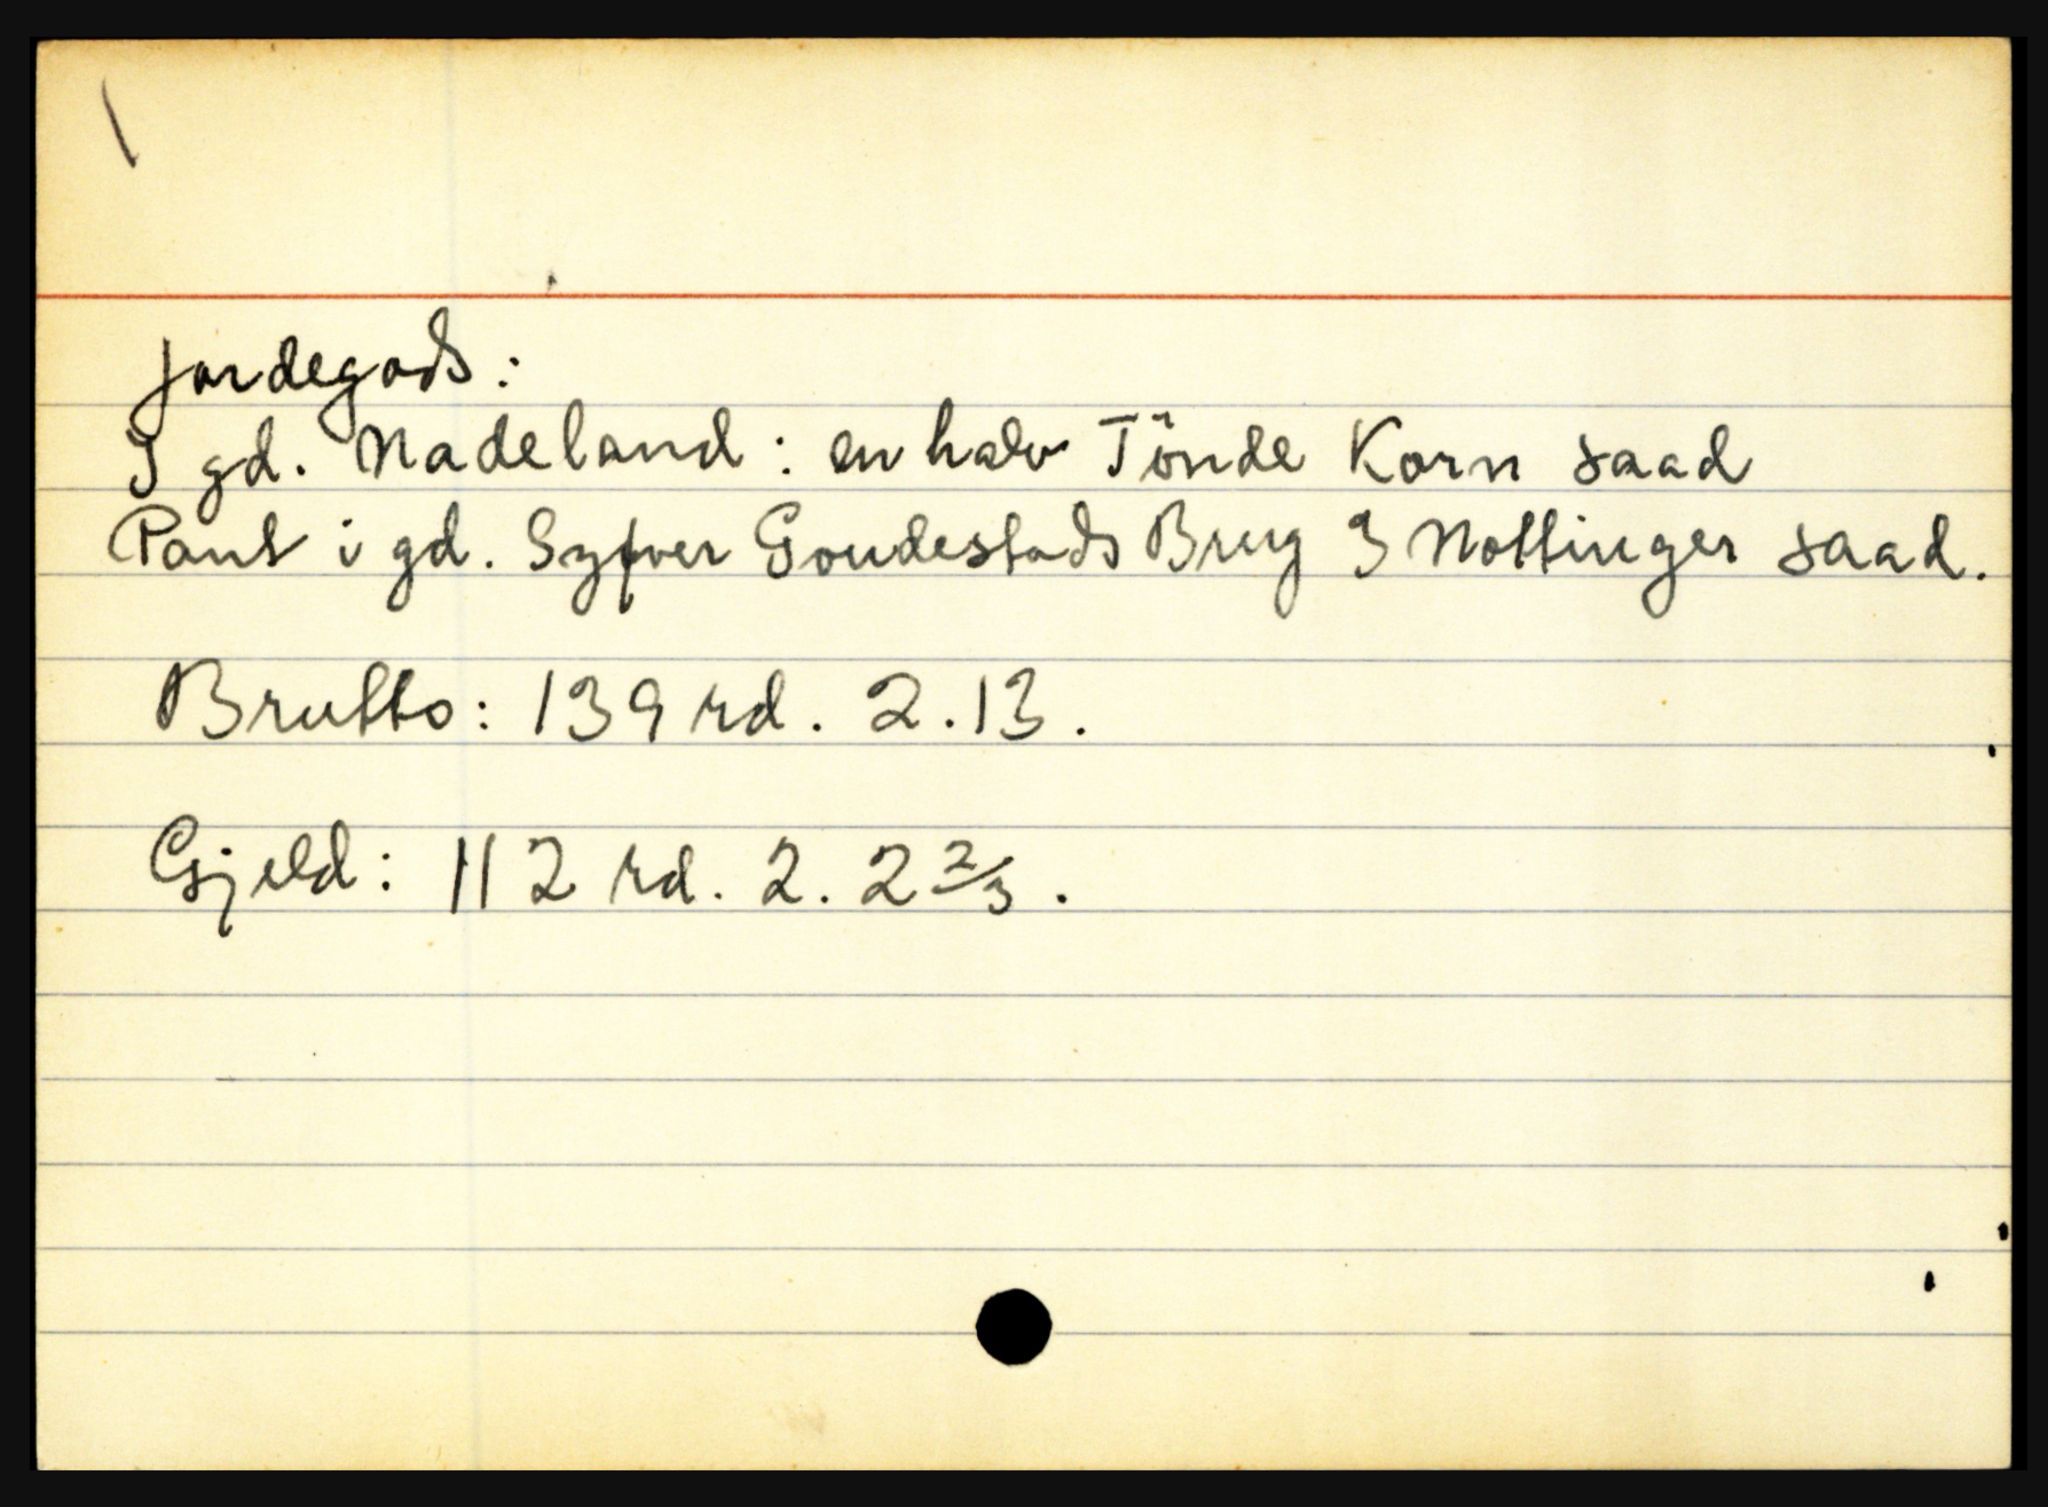 Jordegods:
I gd. Nadeland: en halv Tönde Korn saad
Pant i gd. Syfver Goudestads Brug 3 Mottinger saad.
Brutto: 139 rd. 2.13.
Gjeld: 112 rd. 2. 2 2/3.